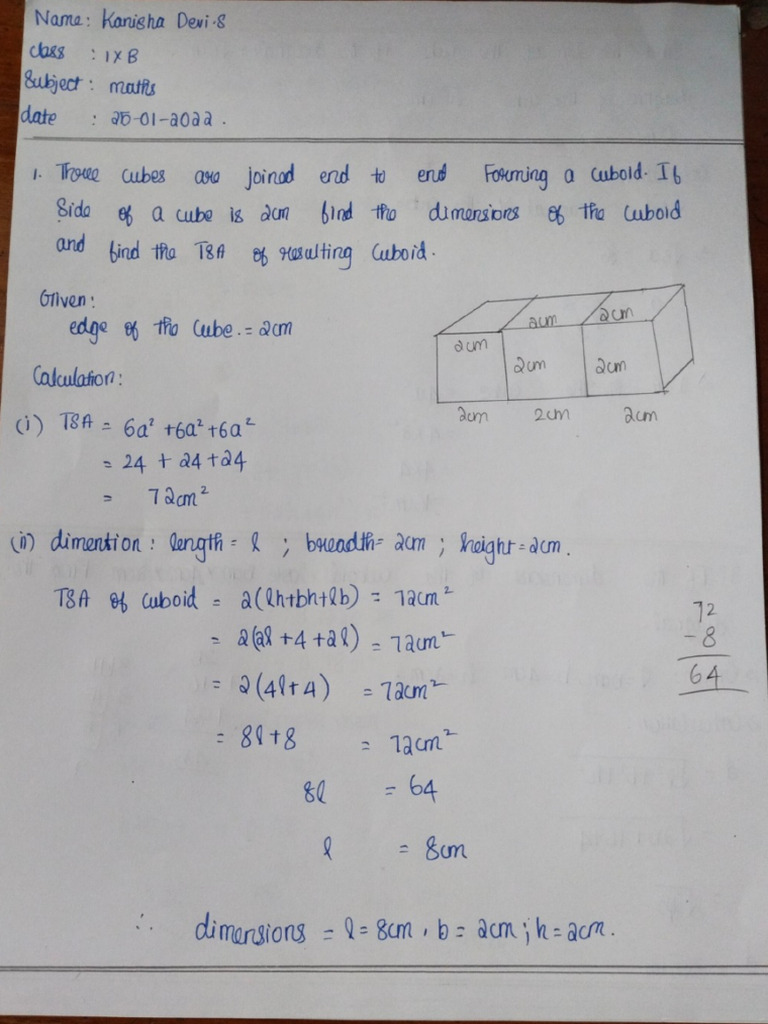 Name: Kanisha Devi.S
class : IX B
Subject: maths
date : 25-01-2022.
1. Three cubes are joined end to end Forming a cuboid. If
Side of a cube is 2cm find the dimensions of the cuboid
and find the TSA of resulting cuboid.
Given:
edge of the cube. = 2cm
2cm 2cm
2cm 2cm 2cm
2cm 2cm 2cm
Calculation:
(i) TSA = 6a² + 6a² + 6a²
= 24 + 24 + 24
= 72cm²
(ii) dimention: length = l ; breadth = 2cm ; height = 2cm.
TSA of cuboid = 2(lh+bh+lb) = 72cm²
= 2(2l + 4 + 2l) = 72cm²
= 2(4l+4) = 72cm²
= 8l+8 = 72cm²
8l = 64
l = 8cm
72
- 8
64
∴ dimensions = l = 8cm, b = 2cm; h = 2cm.